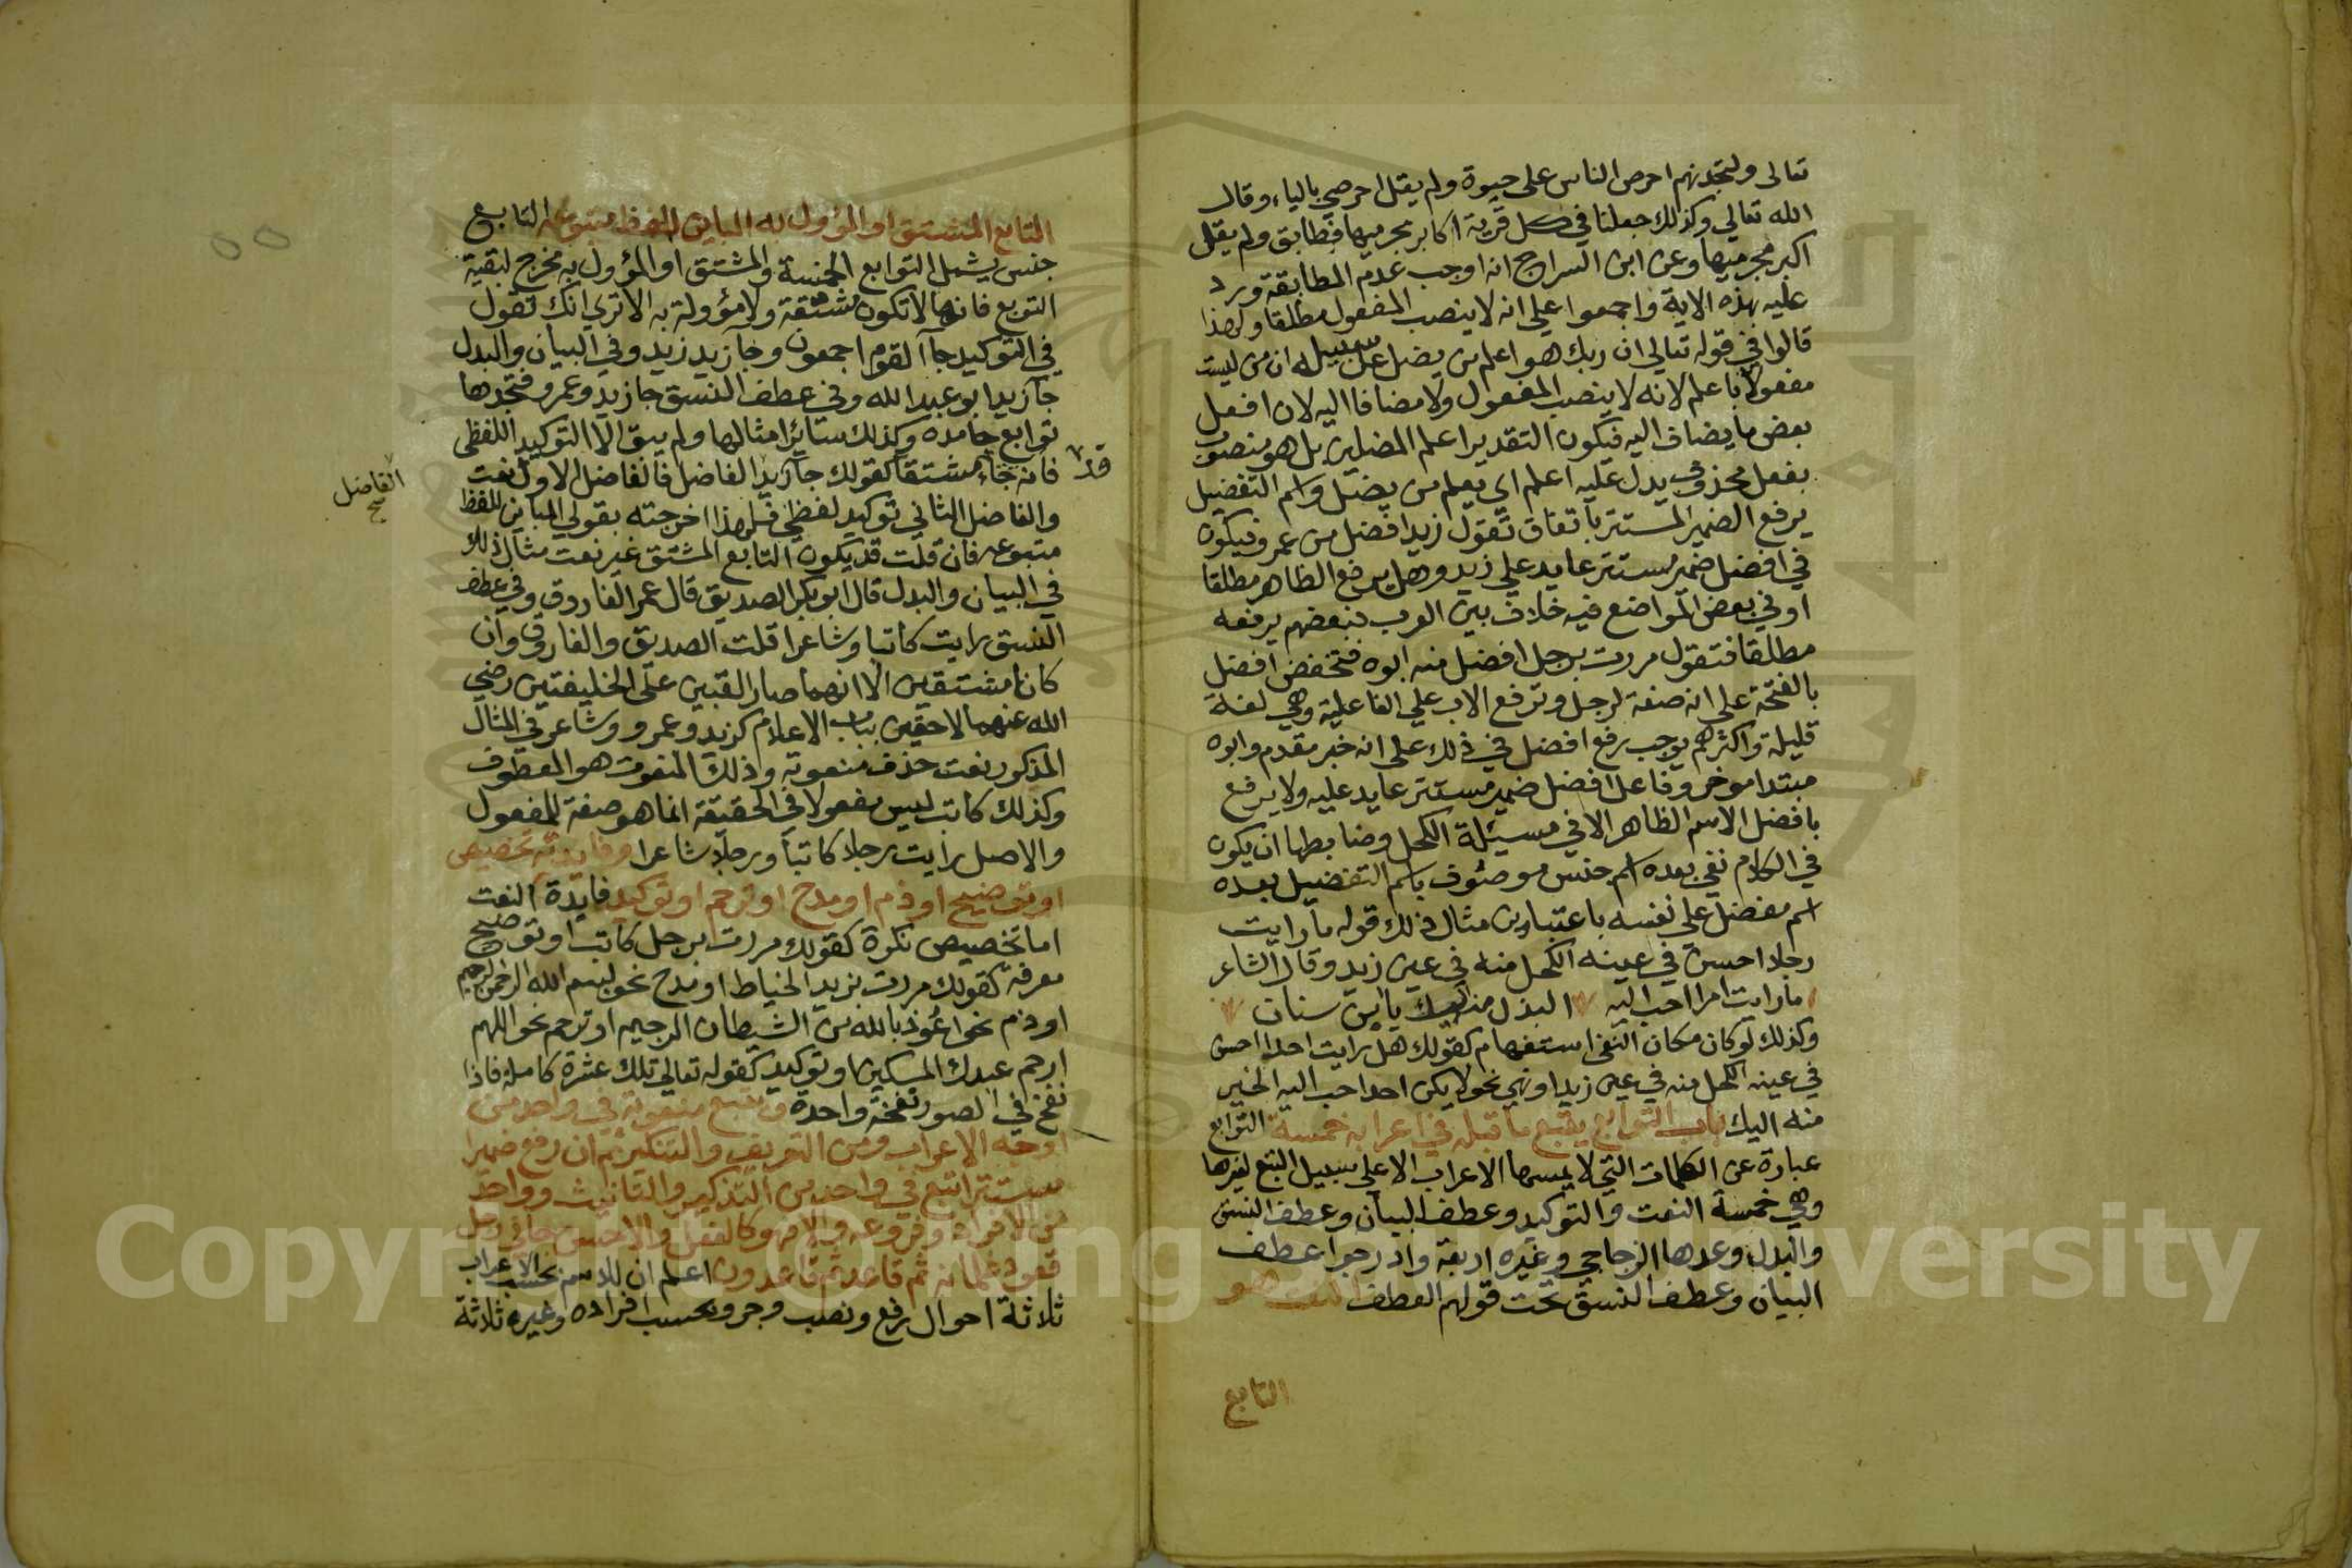 تعالى ولتجدنهم احرص الناس على حيوة ولم يقل احرصي بالياء وقال
الله تعالي وكذلك جعلنا في كل قرية اكابر مجرميها فطابق ولم يقل
اكبر مجرميها وعن ابن السراج انه اوجب عدم المطابقة ورد
عليه بهذه الاية واجمعوا علي انه لا ينصب المفعول مطلقا ولهذا
قالوا في قوله تعالي ان ربك هو اعلم من يضل عن سبيله ان من ليست
مفعولا باعلم لانه لا ينصب المفعول ولا مضافا اليه لان افعل
بعض ما يضاف اليه فيكون التقدير اعلم المضلين بل هو منصوب
بفعل محذوف يدل عليه اعلم اي يعلم من يضل واسم التفضيل
يرفع الضمير المستتر باتفاق تقول زيد افضل من عمرو فيكون
في افضل ضمير مستتر عايد علي زيد وهل يرفع الظاهر مطلقا
او في بعض المواضع فيه خلاف بين العرب فبعضهم يرفعه
مطلقا فتقول مررت برجل افضل منه ابوه فتخفض افضل
بالفتحة على انه صفة لرجل وترفع الاب علي الفاعلية وهي لغة
قليلة واكثرهم يوجب رفع افضل في ذلك على انه خبر مقدم وابوه
مبتدا موخر وفاعل افضل ضمير مستتر عايد عليه ولا يرفع
بافضل الاسم الظاهر الا في مسيئلة الكحل وضابطها ان يكون
في الكلام نفي بعده اسم جنس موصوف باسم التفضيل بعده
اسم مفضل على نفسه باعتبارين مثال ذلك قوله ما رايت
رجلا احسن في عينه الكحل منه في عين زيد وقال الشاعر
ما رايت امرا احب اليه البذل منه اليك يا ابن سنان
وكذلك لو كان مكان النفي استفهام كقولك هل رايت احدا احسن
في عينه الكحل منه في عين زيد او نهي نحو لا يكن احد احب اليه الخير
منه اليك باب التوابع يتبع ما قبله في اعرابه خمسة التوابع
عبارة عن الكلمات التي لا يمسها الاعراب الا على سبيل التبع لغيرها
وهي خمسة النعت والتوكيد وعطف البيان وعطف النسق
والبدل وعدها الزجاجي وغيره اربعة وادرجوا عطف
البيان وعطف النسق تحت قولهم العطف النعت هو
التابع
التابع المشتق او المؤول به المباين للفظ متبوعه التابع
جنس يشمل التوابع الخمسة والمشتق او المؤول به مخرج لبقية
التوبع فانها لا تكون مشتقة ولا مؤولة به الا تري انك تقول
في التوكيد جآ القوم اجمعون وجآ زيد زيد وفي البيان والبدل
جآ زيد ابو عبد الله وفي عطف النسق جا زيد وعمرو فتجدها
توابع جامده وكذلك سائر امثالها ولم يبق الا التوكيد اللفظي
قد
فانه جاء مشتقا كقولك جآ زيد الفاضل فالفاضل الاول نعت
الفاضل
صح
والفاضل الثاني توكيد لفظي فلهذا اخرجته بقولي المباين للفظ
متبوعه فان قلت قد يكون التابع المشتق غير نعت مثال ذلك
في البيان والبدل قال ابو بكر الصديق قال عمر الفاروق وفي عطف
النسق رايت كاتبا وشاعرا قلت الصديق والفاروق وان
كانا مشتقين الا انهما صارا لقبين على الخليفتين رضي
الله عنهما لاحقين بباب الاعلام كزيد وعمرو وشاعر في المثال
المذكور نعت حذف منعوته وذلك المنعوت هو المعطوف
وكذلك كاتب ليس مفعولا في الحقيقة انما هو صفة للمفعول
والاصل رايت رجلا كاتبا ورجلا شاعرا وفايدته تخصيص
او توضيح او ذم او مدح او ترحم او توكيد فايدة النعت
اما تخصيص نكرة كقولك مررت برجل كاتب او توضيح
معرفة كقولك مررت بزيد الخياط او مدح نحو بسم الله الرحمن الرحيم
او ذم نحو اعوذ بالله من الشيطان الرجيم او ترحم نحو اللهم
ارحم عبدك المسكين او توكيد كقوله تعالي تلك عشرة كاملة فاذا
نفخ في الصور نفخة واحدة ويتبع منعوته في واحد من
اوجه الاعراب ومن التعريف والتنكير ثم ان رفع ضميرا
مستترا تبع في واحد من التذكير والتانيث وواحد
من الافراد وفروعه والا فهو كالفعل والاحسن جاني رجل
قعود غلمانه ثم قاعد ثم قاعدون اعلم ان للاسم بحسب الاعراب
ثلاثة احوال رفع ونصب وجر وبحسب افراده وغيره ثلاثة